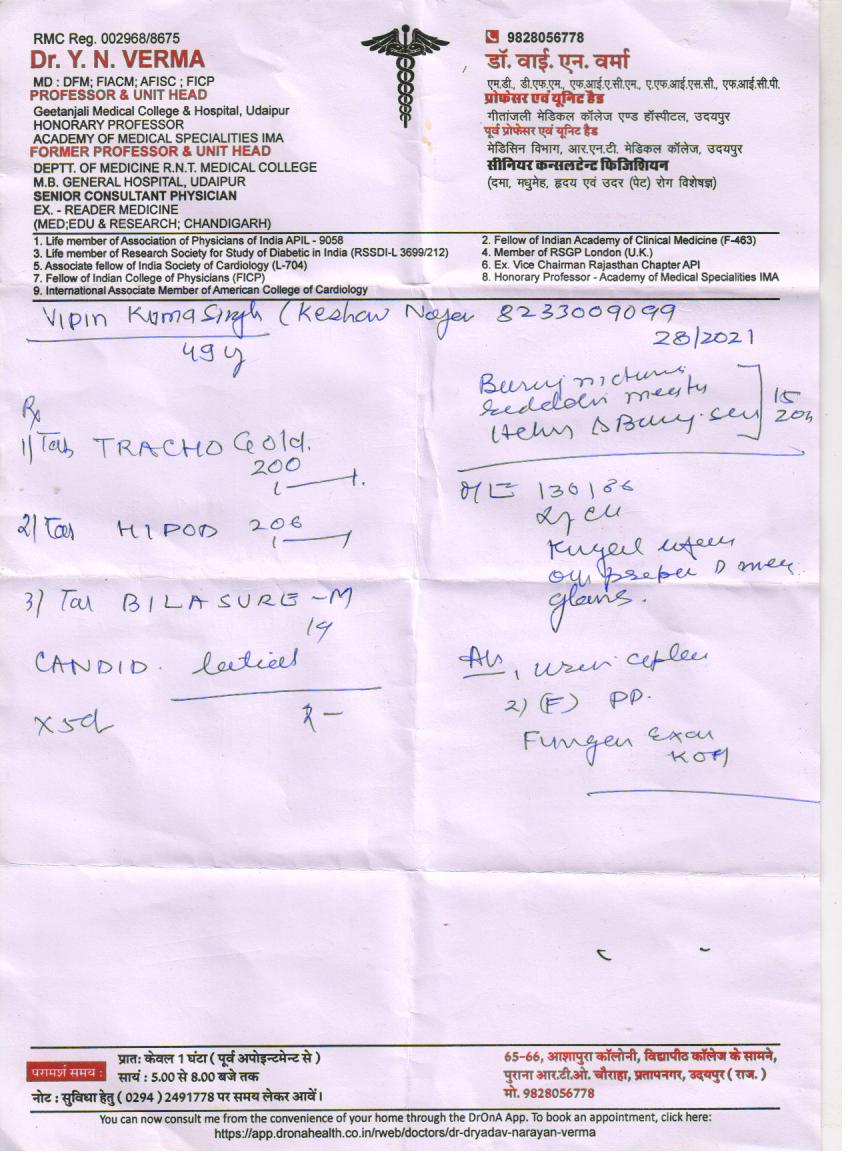 RMC Reg. 002968/8675
Dr. Y. N. VERMA
MD : DFM; FIACM; AFISC ; FICP
PROFESSOR & UNIT HEAD
Geetanjali Medical College & Hospital, Udaipur
HONORARY PROFESSOR
ACADEMY OF MEDICAL SPECIALITIES IMA
FORMER PROFESSOR & UNIT HEAD
DEPTT. OF MEDICINE R.N.T. MEDICAL COLLEGE
M.B. GENERAL HOSPITAL, UDAIPUR
SENIOR CONSULTANT PHYSICIAN
EX. - READER MEDICINE
(MED;EDU & RESEARCH; CHANDIGARH)
9828056778
डॉ. वाई. एन. वर्मा
एम.डी., डी.एफ.एम., एफ.आई.ए.सी.एम., ए.एफ.आई.एस.सी., एफ.आई.सी.पी.
प्रोफेसर एवं यूनिट हैड
गीतांजली मेडिकल कॉलेज एण्ड हॉस्पीटल, उदयपुर
पूर्व प्रोफेसर एवं यूनिट हैड
मेडिसिन विभाग, आर.एन.टी. मेडिकल कॉलेज, उदयपुर
सीनियर कन्सलटेन्ट फिजिशियन
(दमा, मधुमेह, हृदय एवं उदर (पेट) रोग विशेषज्ञ)
1. Life member of Association of Physicians of India APIL - 9058
2. Fellow of Indian Academy of Clinical Medicine (F-463)
3. Life member of Research Society for Study of Diabetic in India (RSSDI-L 3699/212)
4. Member of RSGP London (U.K.)
5. Associate fellow of India Society of Cardiology (L-704)
6. Ex. Vice Chairman Rajasthan Chapter API
7. Fellow of Indian College of Physicians (FICP)
8. Honorary Professor - Academy of Medical Specialities IMA
9. International Associate Member of American College of Cardiology
Vipin Kuma Singh (Keshav Nagar 8233009099
28/2021
49 y
Rx
1) Tab TRACHO Gold.
200
2) Tab HIPOD 206
3) Tab BILASURE-M
CANDID.
x5d
15
20
O/E 130/86
glans.
2) (F) PP.
Fungal Exam
KOH
परामर्श समय :
प्रातः केवल 1 घंटा ( पूर्व अपोइन्टमेन्ट से )
सायं : 5.00 से 8.00 बजे तक
नोट : सुविधा हेतु ( 0294 ) 2491778 पर समय लेकर आवें।
65-66, आशापुरा कॉलोनी, विद्यापीठ कॉलेज के सामने,
पुराना आर.टी.ओ. चौराहा, प्रतापनगर, उदयपुर ( राज. )
मो. 9828056778
You can now consult me from the convenience of your home through the DrOnA App. To book an appointment, click here:
https://app.dronahealth.co.in/rweb/doctors/dr-dryadav-narayan-verma